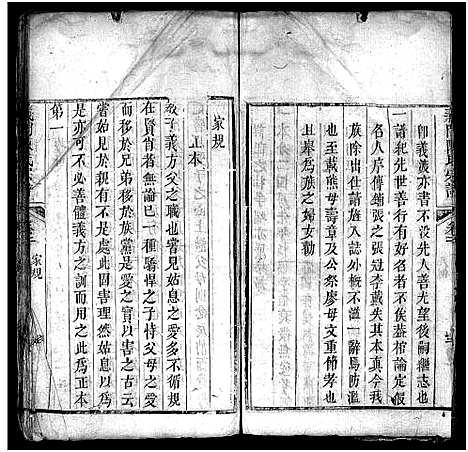 即義羨亦書不没先人善光望後嗣繼志也
一譜紀先世善行有好名者不俟蓋棺論定假
名人序傳鋪張之張冠李戴失其本真今我
族除出仕誥旌入誌外概不濫一辭爲防濫
也至載熊母壽章及公祭廖母文重節孝也
且舉爲族之婦女勸
家規
正本
教子義方父之職也嘗見姑息之愛多不循規
在賢肖者無論已一種驕悍之子恃父母之愛
而移於兄弟移於族黨是愛之實以害之古云
嘗始於親有不是處時因害理然姑息以爲
是亦可不必善體義方之訓而用之此爲正本
第一
家規